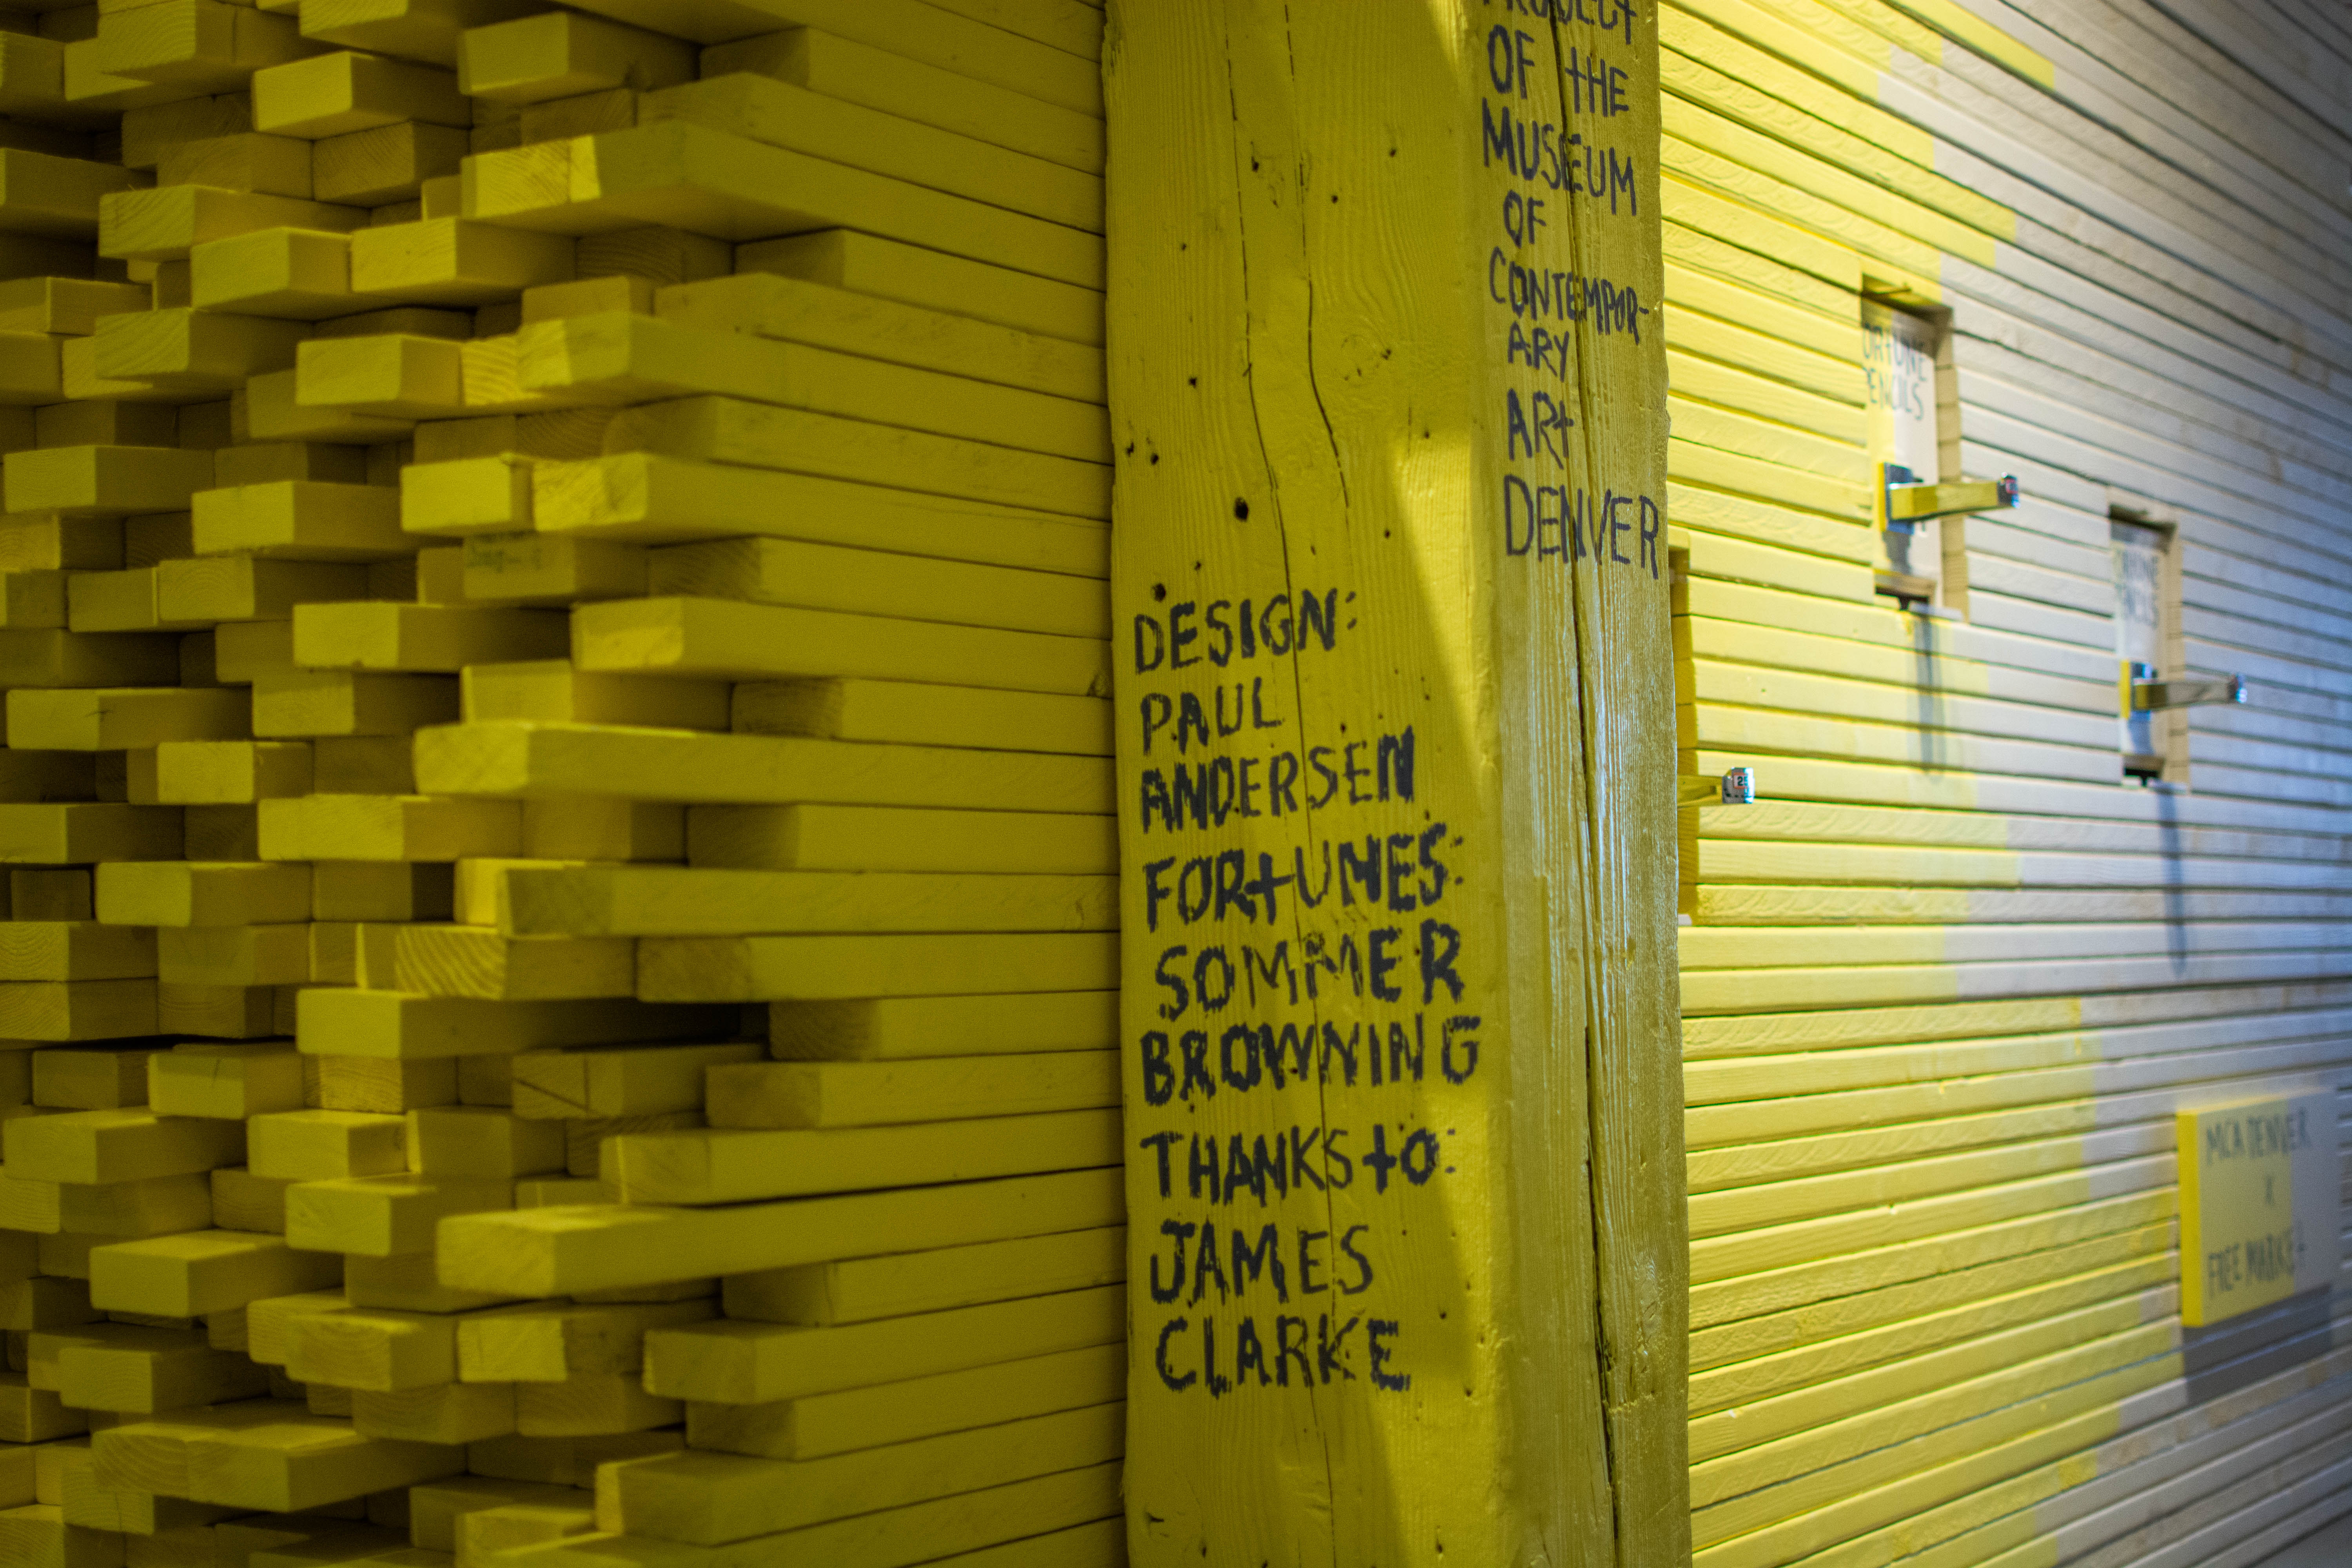 OF tHE
MUSEUM
OF
CONTEMPOR-
ARY
ARt
DENVER
DESIGN:
PAUL
ANDERSEN
FORtUNES:
SOMMER
BROWNING
THANKS tO:
JAMES
CLARKE
PENCILS
MCA DENVER
X
FREE MARKET
25